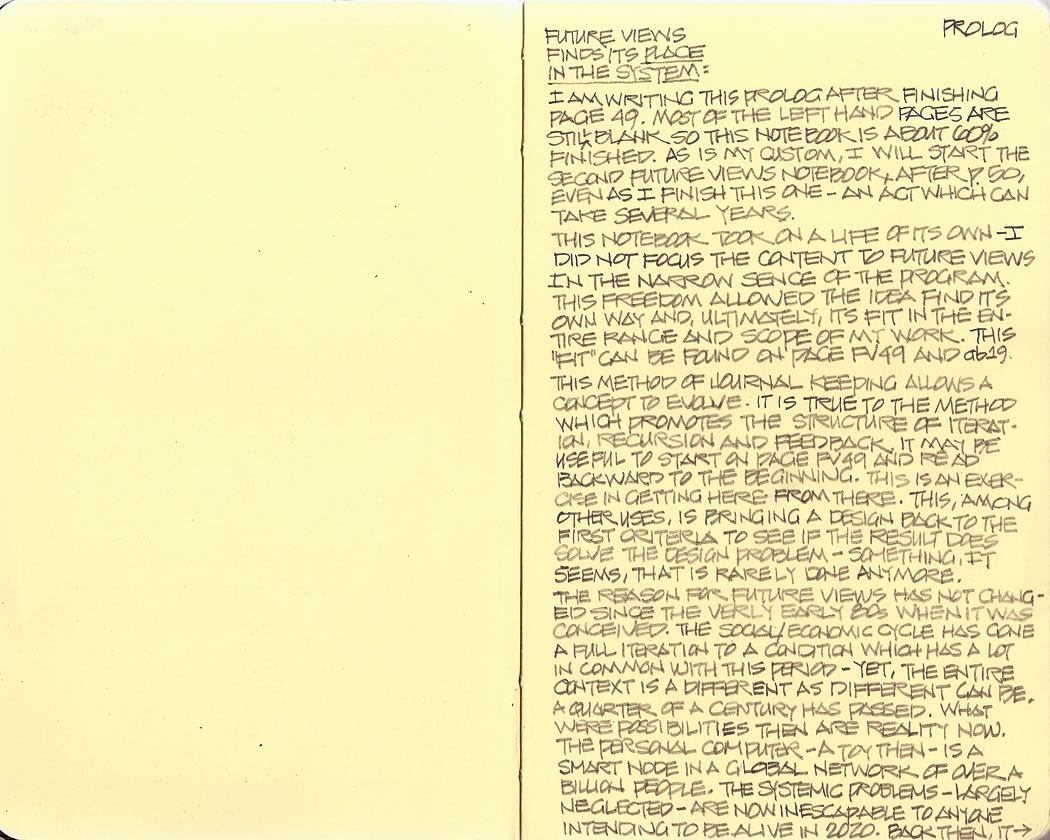 PROLOG
FUTURE VIEWS
FINDS ITS PLACE
IN THE SYSTEM:
I AM WRITING THIS PROLOG AFTER FINISHING
PAGE 49. MOST OF THE LEFT HAND PAGES ARE
STILL BLANK SO THIS NOTEBOOK IS ABOUT 60%
FINISHED. AS IS MY CUSTOM, I WILL START THE
SECOND FUTURE VIEWS NOTEBOOK, AFTER P. 50,
EVEN AS I FINISH THIS ONE - AN ACT WHICH CAN
TAKE SEVERAL YEARS.
THIS NOTEBOOK TOOK ON A LIFE OF ITS OWN - I
DID NOT FOCUS THE CONTENT TO FUTURE VIEWS
IN THE NARROW SENCE OF THE PROGRAM.
THIS FREEDOM ALLOWED THE IDEA FIND ITS
OWN WAY AND, ULTIMATELY, ITS FIT IN THE EN-
TIRE RANGE AND SCOPE OF MY WORK. THIS
"FIT" CAN BE FOUND ON PAGE FV49 AND ab19.
THIS METHOD OF JOURNAL KEEPING ALLOWS A
CONCEPT TO EVOLVE. IT IS TRUE TO THE METHOD
WHICH PROMOTES THE STRUCTURE OF ITERAT-
ION, RECURSION AND FEEDBACK. IT MAY BE
USEFUL TO START ON PAGE FV49 AND READ
BACKWARD TO THE BEGINNING. THIS IS AN EXER-
CISE IN GETTING HERE FROM THERE. THIS, AMONG
OTHER USES, IS BRINGING A DESIGN BACK TO THE
FIRST CRITERIA TO SEE IF THE RESULT DOES
SOLVE THE DESIGN PROBLEM - SOMETHING, IT
SEEMS, THAT IS RARELY DONE ANYMORE.
THE REASON FOR FUTURE VIEWS HAS NOT CHANG-
ED SINCE THE VERLY EARLY 80s WHEN IT WAS
CONCEIVED. THE SOCIAL/ECONOMIC CYCLE HAS GONE
A FULL ITERATION TO A CONDITION WHICH HAS A LOT
IN COMMON WITH THIS PERIOD - YET, THE ENTIRE
CONTEXT IS A DIFFERENT AS DIFFERENT CAN BE.
A QUARTER OF A CENTURY HAS PASSED. WHAT
WERE POSSIBILITIES THEN ARE REALITY NOW.
THE PERSONAL COMPUTER - A TOY THEN - IS A
SMART NODE IN A GLOBAL NETWORK OF OVER A
BILLION PEOPLE. THE SYSTEMIC PROBLEMS - LARGELY
NEGLECTED - ARE NOW INESCAPABLE TO ANYONE
INTENDING TO BE ALIVE IN 2020. BACK THEN IT →